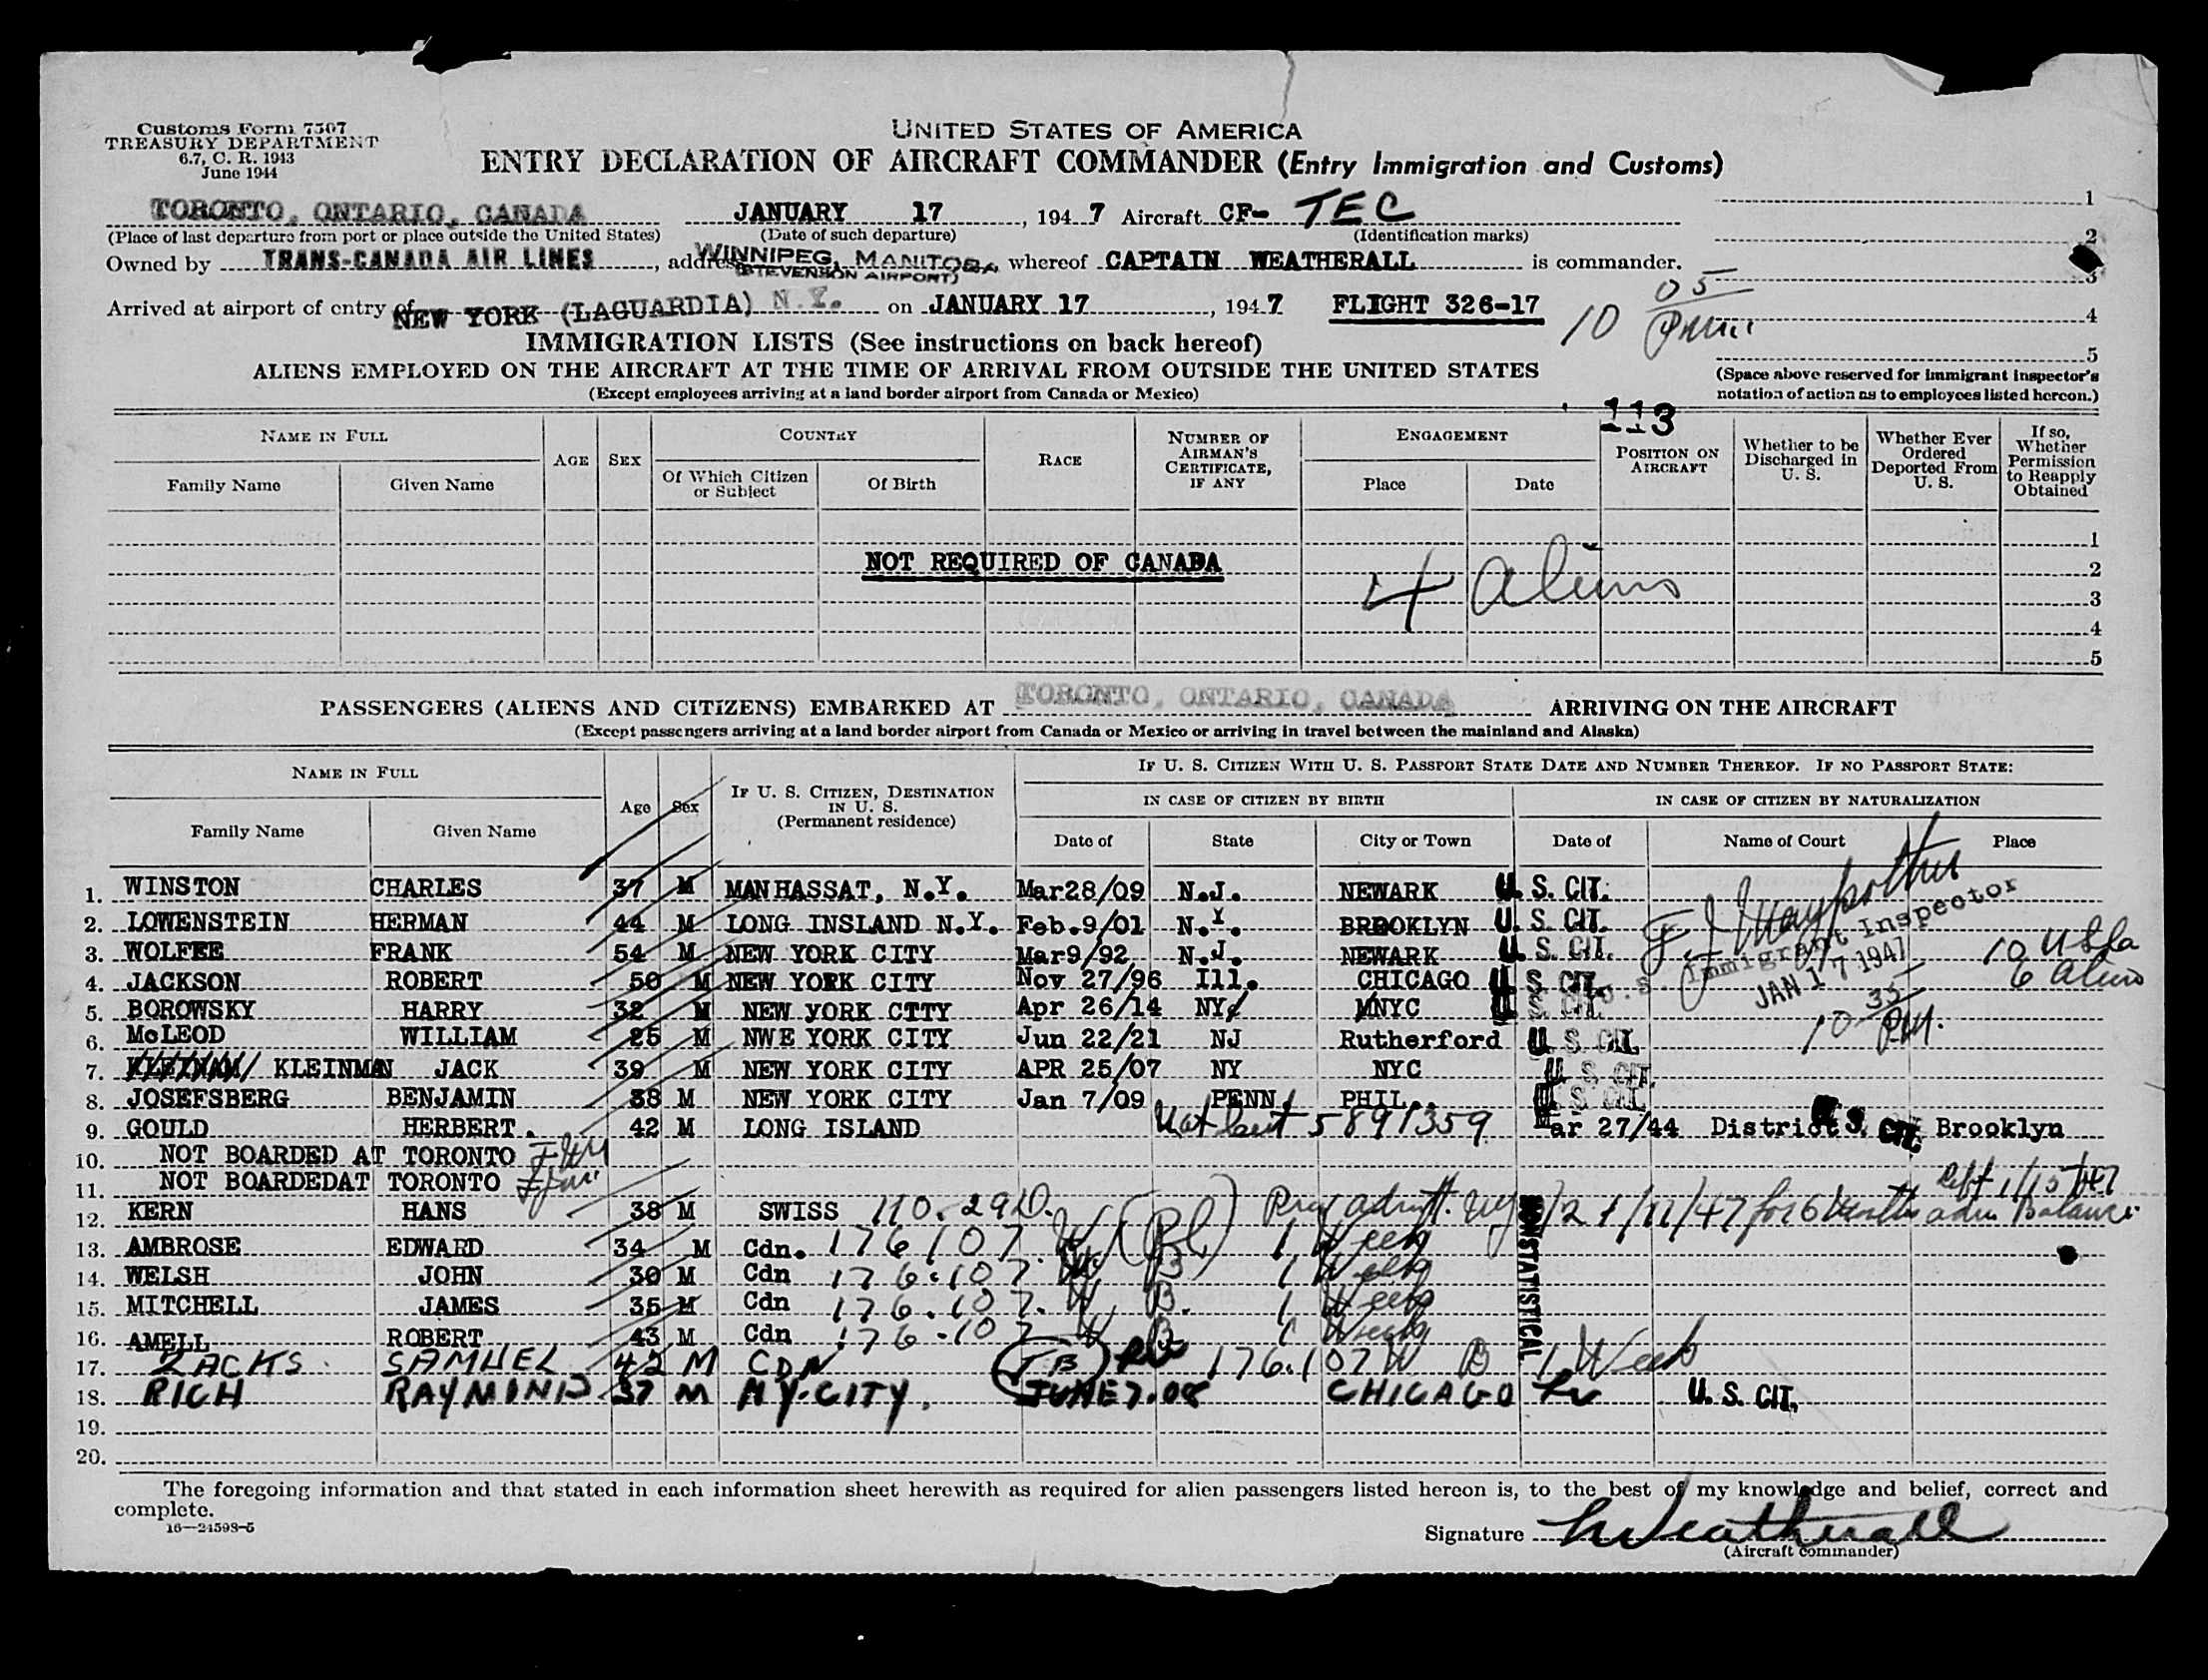 Customs Form 7507
TREASURY DEPARTMENT
6.7, C. R. 1943
June 1944
UNITED STATES OF AMERICA
ENTRY DECLARATION OF AIRCRAFT COMMANDER (Entry Immigration and Customs)
TORONTO, ONTARIO, CANADA JANUARY 17, 1947 Aircraft CF- TEC 1
(Place of last departure from port or place outside the United States) (Date of such departure) (Identification marks)
2
Owned by TRANS-CANADA AIR LINES, address WINNIPEG, MANITOBA whereof CAPTAIN WEATHERALL is commander.
(STEVENSON AIRPORT)
3
Arrived at airport of entry of NEW YORK (LAGUARDIA) N.Y. on JANUARY 17, 1947 FLIGHT 326-17 10 05
4
IMMIGRATION LISTS (See instructions on back hereof)
5
ALIENS EMPLOYED ON THE AIRCRAFT AT THE TIME OF ARRIVAL FROM OUTSIDE THE UNITED STATES
(Space above reserved for immigrant inspector's
(Except employees arriving at a land border airport from Canada or Mexico)
notation of action as to employees listed hereon.)
113
NAME IN FULL
Family Name Given Name
AGE SEX
COUNTRY
Of Which Citizen or Subject Of Birth
RACE
NUMBER OF AIRMAN'S CERTIFICATE, IF ANY
ENGAGEMENT
Place Date
POSITION ON AIRCRAFT
Whether to be Discharged in U. S.
Whether Ever Ordered Deported From U. S.
If so, Whether Permission to Reapply Obtained
1
NOT REQUIRED OF CANADA 2
4 Aliens 3
4
5
PASSENGERS (ALIENS AND CITIZENS) EMBARKED AT TORONTO, ONTARIO, CANADA ARRIVING ON THE AIRCRAFT
(Except passengers arriving at a land border airport from Canada or Mexico or arriving in travel between the mainland and Alaska)
NAME IN FULL
Family Name Given Name
Age Sex
IF U. S. CITIZEN, DESTINATION IN U. S. (Permanent residence)
IF U. S. CITIZEN WITH U. S. PASSPORT STATE DATE AND NUMBER THEREOF. IF NO PASSPORT STATE:
IN CASE OF CITIZEN BY BIRTH IN CASE OF CITIZEN BY NATURALIZATION
Date of State City or Town Date of Name of Court Place
1. WINSTON CHARLES 37 M MANHASSAT, N.Y. Mar28/09 N.J. NEWARK U. S. CIT.
2. LOWENSTEIN HERMAN 44 M LONG INSLAND N.Y. Feb.9/01 N.Y. BROOKLYN U. S. CIT.
3. WOLFEE FRANK 54 M NEW YORK CITY Mar9/92 N.J. NEWARK U. S. CIT.
4. JACKSON ROBERT 50 M NEW YORK CITY Nov 27/96 Ill. CHICAGO U. S. CIT.
5. BOROWSKY HARRY 32 M NEW YORK CTTY Apr 26/14 NY NYC U. S. CIT.
U.S. Immigrant Inspector
JAN 17 1947
10 35 P.M.
6 Aliens
6. McLEOD WILLIAM 25 M NWE YORK CITY Jun 22/21 NJ Rutherford U. S. CIT.
7. KLEINMAN JACK 39 M NEW YORK CITY APR 25/07 NY NYC U. S. CIT.
8. JOSEFSBERG BENJAMIN 38 M NEW YORK CITY Jan 7/09 PENN. PHIL.. U. S. CIT.
9. GOULD HERBERT. 42 M LONG ISLAND Nat Cert 5891359 Mar 27/44 District U. S. CIT. Brooklyn
10. NOT BOARDED AT TORONTO
11. NOT BOARDEDAT TORONTO
12. KERN HANS 38 M SWISS 110.29D. 1/11/47 for 6 Months adm Balance
13. AMBROSE EDWARD 34 M Cdn. 176/107 W (Bl) 1 Week
14. WELSH JOHN 30 M Cdn 176.107. W. B 1 Week
15. MITCHELL JAMES 35 M Cdn 176.107. W. B. 1 Week
16. AMELL ROBERT 43 M Cdn 176.107 W B 1 Week
NONSTATISTICAL
17. ZACKS SAMUEL 42 M CDN (TB) 176.107 W B 1 Week
18. RICH RAYMOND 37 M NY.CITY. JUNE 7.08 CHICAGO U. S. CIT.
19.
20.
The foregoing information and that stated in each information sheet herewith as required for alien passengers listed hereon is, to the best of my knowledge and belief, correct and
complete.
16—24598-5
Signature Weatherall
(Aircraft commander)